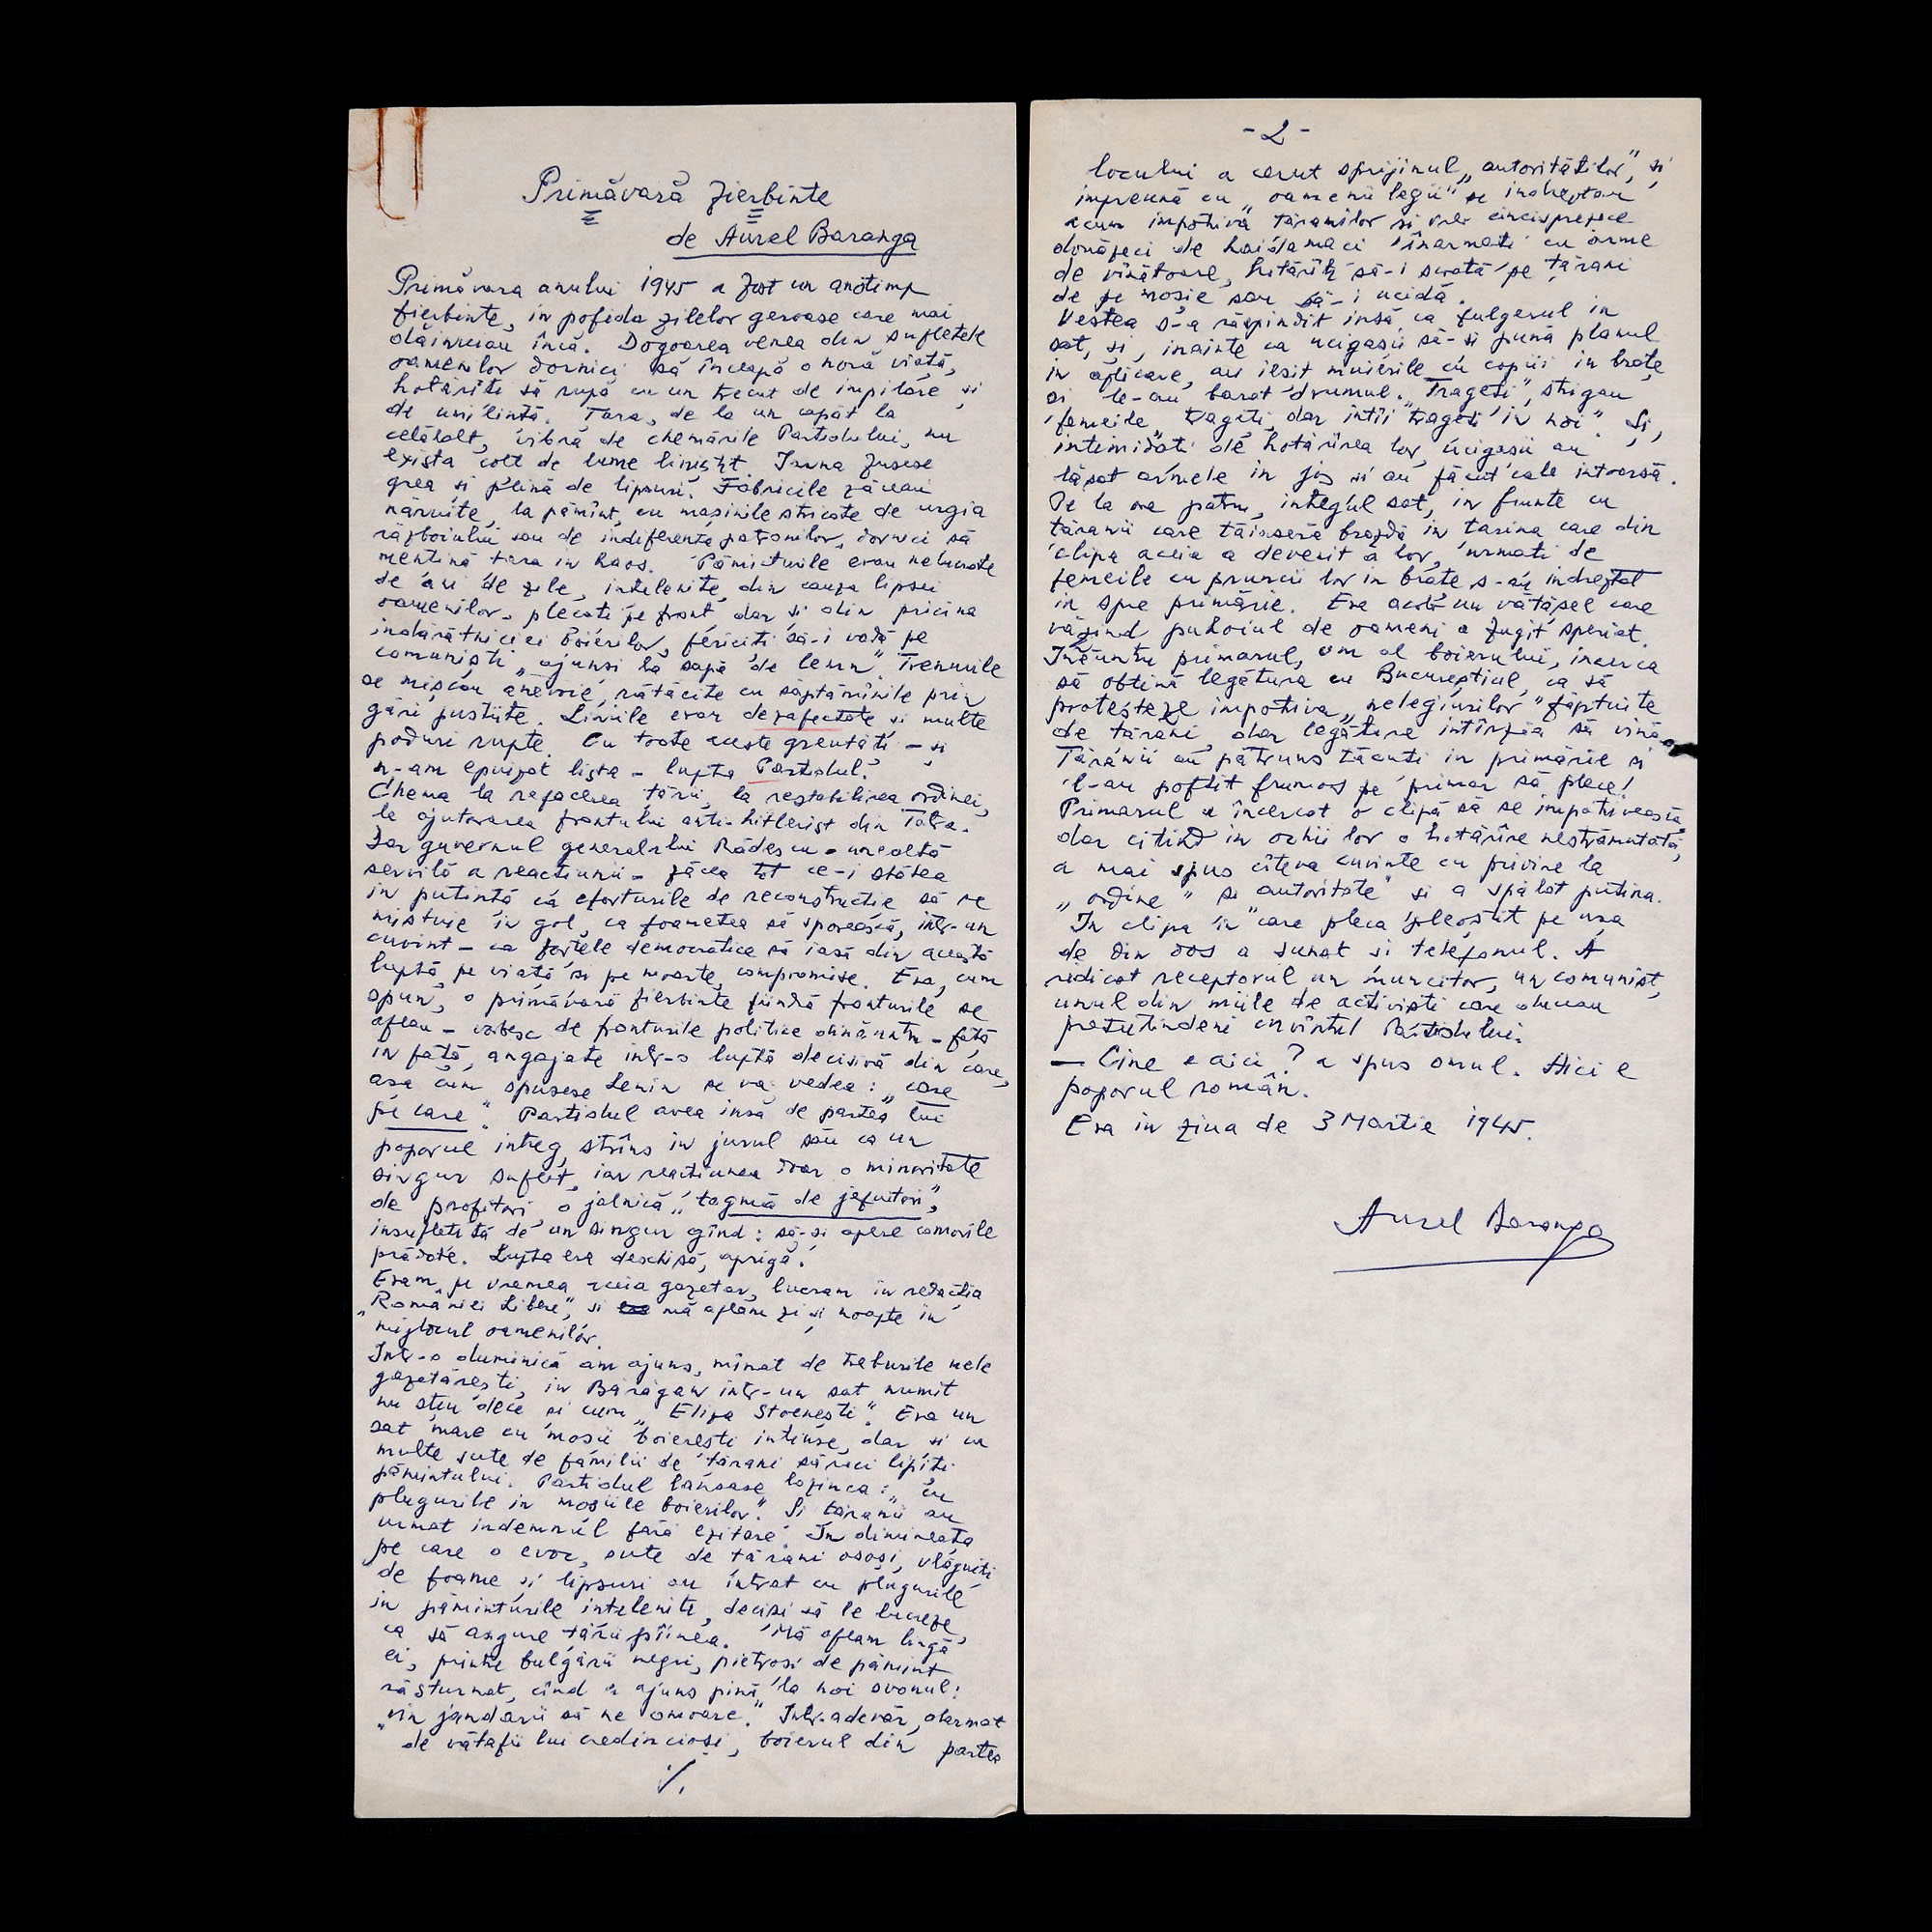 Primăvară fierbinte
de Aurel Baranga
Primăvara anului 1945 a fost un anotimp
fierbinte, in pofida zilelor geroase care mai
dăinuiau încă. Dogoarea venea din sufletele
oamenilor dornici să înceapă o nouă viață,
hotărîte să rupă cu un trecut de impilare și
de umilintă. Țara, de la un capăt la
celălalt, vibra de chemările Partidului, nu
exista colt de lume linistit. Iarna fusese
grea si plină de lipsuri. Fabricile zăceau
năruite, la pămînt, cu masinile stricate de urgia
războiului sau de indiferenta patronilor, dornici să
mentină tara in haos. Pămînturile erau nelucrate
de ani de zile, intelenite, din cauza lipsei
oamenilor, plecati pe front, dar si din pricina
indărătniciei boierilor, fericiti să-i vadă pe
comuniști „ajunsi la sapă de lemn". Trenurile
se mișcau anevoie, rătăcite cu săptămînile prin
gări pustiite. Liniile erau dezafectate si multe
poduri rupte. Cu toate aceste greutăti – si
n-am epuizat lista – lupta Partidul.
Chema la refacerea tării, la restabilirea ordinei,
la ajutorarea frontului anti-hitlerist din Tatra.
Iar guvernul generalului Rădescu – unealtă
servilă a reactiunii – făcea tot ce-i stătea
in putintă ca eforturile de reconstructie să se
mistuie in gol, ca foametea să sporească, intr-un
cuvint – ca fortele democratice să iasă din această
luptă, pe viată si pe moarte, compromise. Era, cum
spun, o primăvară fierbinte fiindcă fronturile se
aflau – vorbesc de fronturile politice dinăuntru – fată
in fată, angajate intr-o luptă decisivă din care,
asa cum spusese Lenin se va vedea: „care
pe care". Partidul avea insă de partea lui
poporul intreg, strîns in jurul său ca un
singur suflet, iar reactiunea doar o minoritate
de profitori, o jalnică „tagmă de jefuitori",
insufletită de un singur gînd: să-si apere comorile
prădate. Lupta era deschisă, aprigă.
Eram, pe vremea aceia gazetar, lucram in redactia
„României Libere", si mă aflam zi si noapte in
mijlocul oamenilor.
Intr-o duminică am ajuns, mînat de treburile mele
gazetărești, in Bărăgan intr-un sat numit
nu știu dece si cum „Eliza Stoenești". Era un
sat mare cu mosii boierești intinse, dar si cu
multe sute de familii de tărani săraci lipiti
pămintului. Partidul lansase lozinca: „cu
plugurile in mosiile boierilor". Si taranii au
urmat indemnul fără ezitare. In dimineața
pe care o evoc, sute de tărani ososi, vlăguiti
de foame si lipsuri au intrat cu plugurile
in păminturile intelenite, decisi să le lucreze,
ca să asigure tării pîinea. Mă aflam lingă
ei, printre bulgării negri, pietrosi de pămint
răsturnat, cînd a ajuns pină la noi svonul:
„vin jandarii să ne omoare." Intr-adevăr, alarmat
de vătafii lui credincioși, boierul din partea
./.
-2-
locului a cerut sprijinul „autoritătilor", si
impreună cu „oamenii legii" se indreptau
acum impotriva tăranilor si vreo cincisprezece
douăzeci de haidamaci înarmati cu arme
de vînătoare, hotărîti să-i scoată pe tărani
de pe mosie sau să-i ucidă.
Vestea s-a răspindit insă ca fulgerul in
sat, si, inainte ca ucigasii să-si pună planul
in aplicare, au iesit muierile cu copiii in brațe
si le-au barat drumul. „Trageti", strigau
femeile „trageti, dar intîi trageti in noi". Si,
intimidati de hotărirea lor, ucigasii au
lăsat armele in jos si au făcut cale intoarsă.
Pe la ora patru, integul sat, in frunte cu
tăranii care tăiaseră brazdă in tarina care din
clipa aceia a devenit a lor, urmati de
femeile cu pruncii lor in brate s-au indreptat
in spre primărie. Era acolo un vătășel care
văzind puhoiul de oameni a fugit speriat.
Inăuntru primarul, om al boierului, incerca
să obtină legătura cu Bucureștiul, ca să
protesteze impotriva „nelegiurilor" făptuite
de tărani, dar legătura intîrzia să vină.
Tăranii au pătruns tăcuti in primărie si
l-au poftit frumos pe primar să plece!
Primarul a încercat o clipă să se impotrivească,
dar citind in ochii lor o hotărîre nestrămutată,
a mai spus cîteva cuvinte cu privire la
„ordine" si „autoritate" si a spălat putina.
In clipa in care pleca pleostit pe ușa
de din dos a sunat si telefonul. A
ridicat receptorul un muncitor, un comunist,
unul din miile de activisti care duceau
pretutindeni cuvîntul Partidului.
— Cine e aici? a spus omul. Aici e
poporul român.
Era in ziua de 3 Martie 1945.
Aurel Baranga